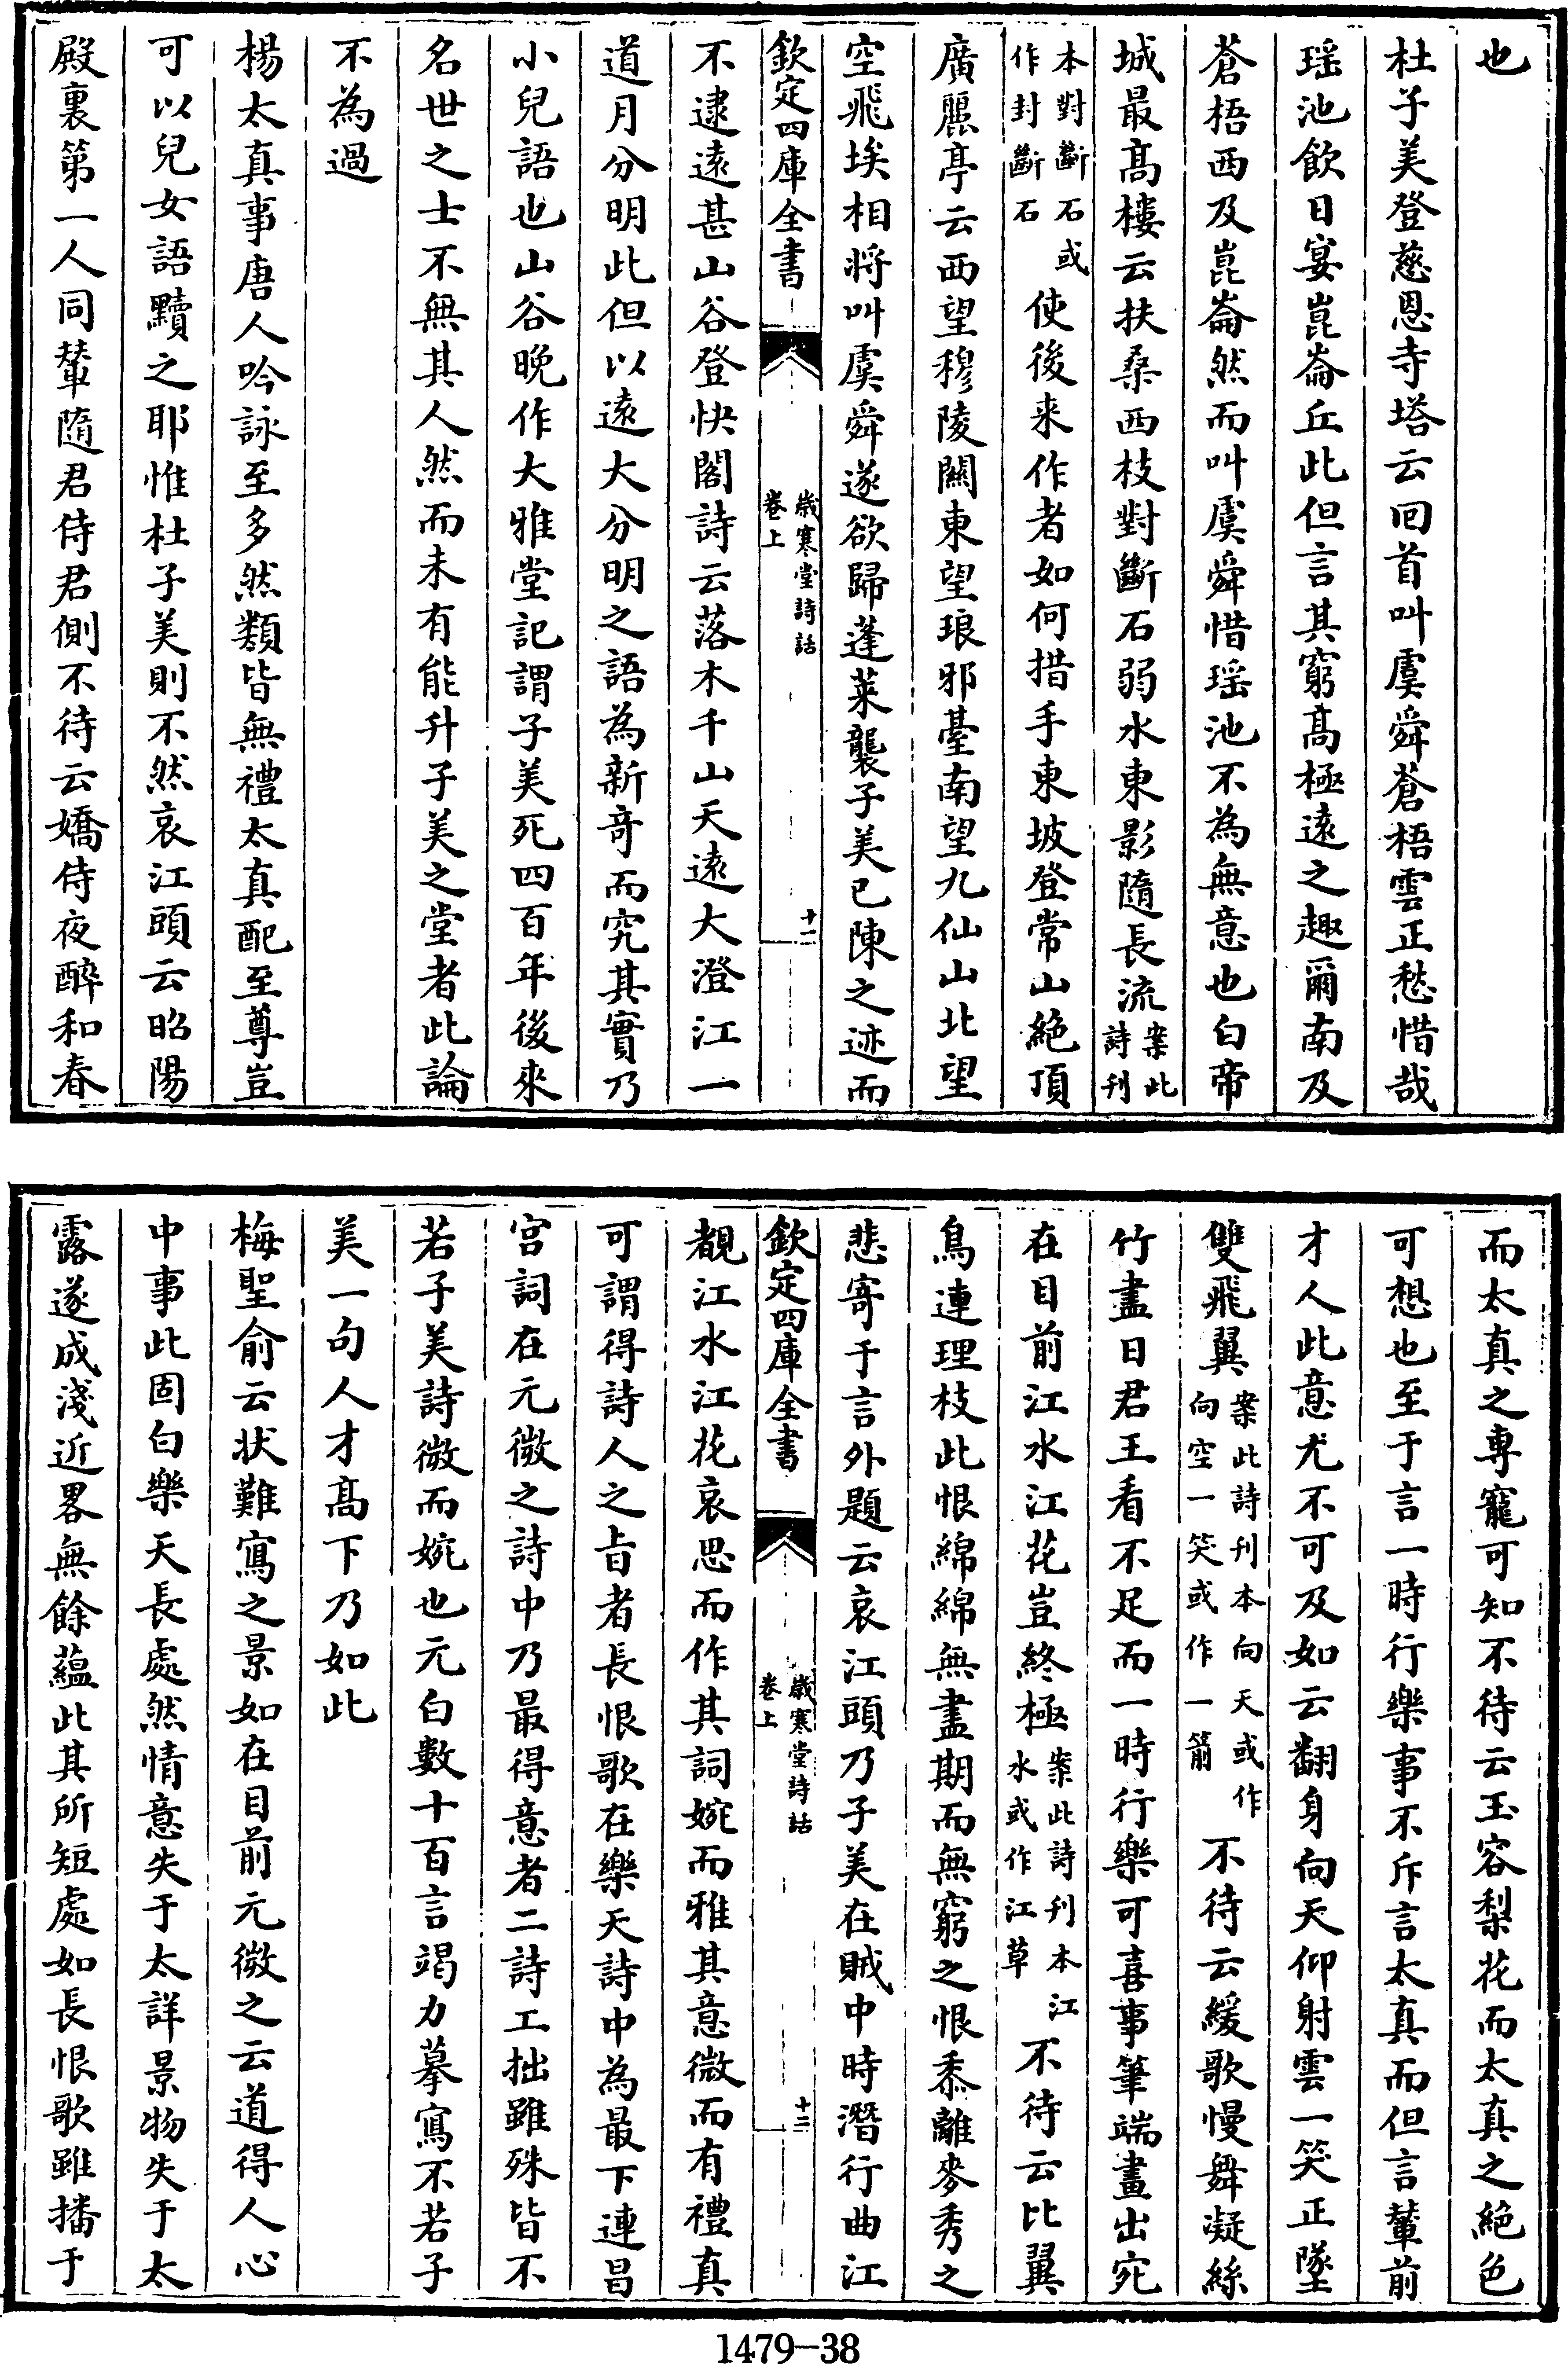 也
杜子美登慈恩寺塔云回首叫虞舜蒼梧雲正愁惜哉
瑶池飲日宴崑崙丘此但言其窮髙極逺之趣爾南及
蒼梧西及崑崙然而叫虞舜惜瑶池不為無意也白帝
城最髙樓云扶桑西枝對斷石弱水東影隨長流案此詩刊
本對斷石或作封斷石使後来作者如何措手東坡登常山絶頂
廣麗亭云西望穆陵關東望琅邪臺南望九仙山北望
空飛埃相將叫虞舜遂欲歸蓬萊襲子美已陳之迹而
欽定四庫全書
歳寒堂詩話
卷上
十一
不逮逺甚山谷登快閣詩云落木千山天逺大澄江一
道月分明此但以逺大分明之語為新奇而究其實乃
小兒語也山谷晚作大雅堂記謂子美死四百年後來
名世之士不無其人然而未有能升子美之堂者此論
不為過
楊太真事唐人吟詠至多然類皆無禮太真配至尊豈
可以兒女語黷之耶惟杜子美則不然哀江頭云昭陽
殿裏第一人同輦隨君侍君側不待云嬌侍夜醉和春
而太真之專寵可知不待云玉容梨花而太真之絶色
可想也至于言一時行樂事不斥言太真而但言輦前
才人此意尤不可及如云翻身向天仰射雲一笑正墜
雙飛翼案此詩刊本向天或作向空一笑或作一箭不待云緩歌慢舞凝絲
竹盡日君王看不足而一時行樂可喜事筆端畫出宛
在目前江水江花豈終極案此詩刊本江水或作江草不待云比翼
鳥連理枝此恨綿綿無盡期而無窮之恨黍離麥秀之
悲寄于言外題云哀江頭乃子美在賊中時潛行曲江
欽定四庫全書
歳寒堂詩話
卷上
十二
覩江水江花哀思而作其詞婉而雅其意微而有禮真
可謂得詩人之旨者長恨歌在樂天詩中為最下連昌
宫詞在元微之詩中乃最得意者二詩工拙雖殊皆不
若子美詩微而婉也元白數十百言竭力摹寫不若子
美一句人才髙下乃如此
梅聖俞云状難寫之景如在目前元微之云道得人心
中事此固白樂天長處然情意失于太詳景物失于太
露遂成淺近畧無餘蘊此其所短處如長恨歌雖播于
1479-38